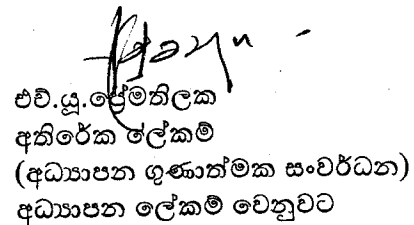 එච්.යූ.ප්‍රේමතිලක
අතිරේක ලේකම්
(අධ්‍යාපන ගුණාත්මක සංවර්ධන)
අධ්‍යාපන ලේකම් වෙනුවට